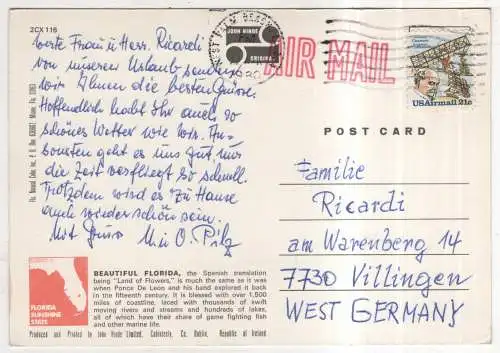 2CX 116
Werte Frau u Herr. Ricardi
von unserer Urlaub senden
wir Ihnen die besten Grüsse
Hoffendlich habt Ihr auch so
schönes Wetter wie wir. An-
sonsten geht es uns gut nur
die Zeit verfliegt so schnell.
Trotzdem wird es zu Hause
auch wieder schön sein.
Mit Gruss M u O. Pilz
JOHN HINDE
ORIGINAL
AIR MAIL
USAirmail 21c
POST CARD
Familie
Ricardi
am Warenberg 14
7730 Villingen
WEST GERMANY
FLORIDA
SUNSHINE
STATE
BEAUTIFUL FLORIDA, the Spanish translation
being "Land of Flowers," is much the same as it was
when Ponce De Leon and his band explored it back
in the fifteenth century. It is blessed with over 1,500
miles of coastline, laced with thousands of swift
moving rivers and streams and hundreds of lakes,
all of which have their share of game fighting fish
and other marine life.
Produced and Printed by John Hinde Limited, Cabinteely, Co. Dublin, Republic of Ireland